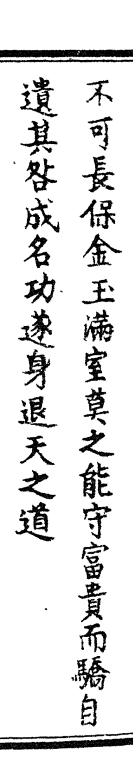 不可長保金玉滿室莫之能守富貴而驕自
遺其咎成名功遂身退天之道